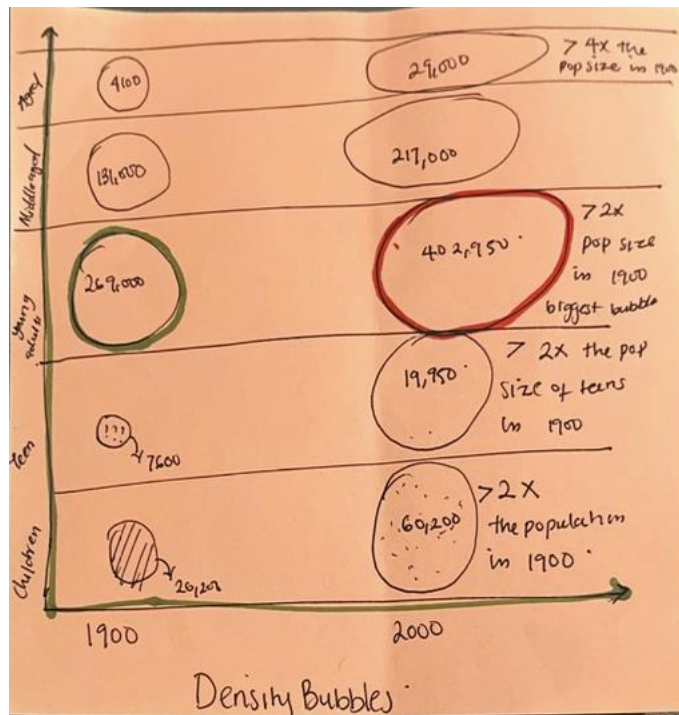 Aged
4100
29,000
> 4x the
pop size in 1900
Middleaged
131,000
217,000
young
adults
269,000
402,950
> 2x
pop size
in 1900
biggest bubble
Teen
7600
19,950
> 2x the pop
size of teens
in 1900
Children
20,200
60,200
> 2x
the population
in 1900
1900
2000
Density Bubbles